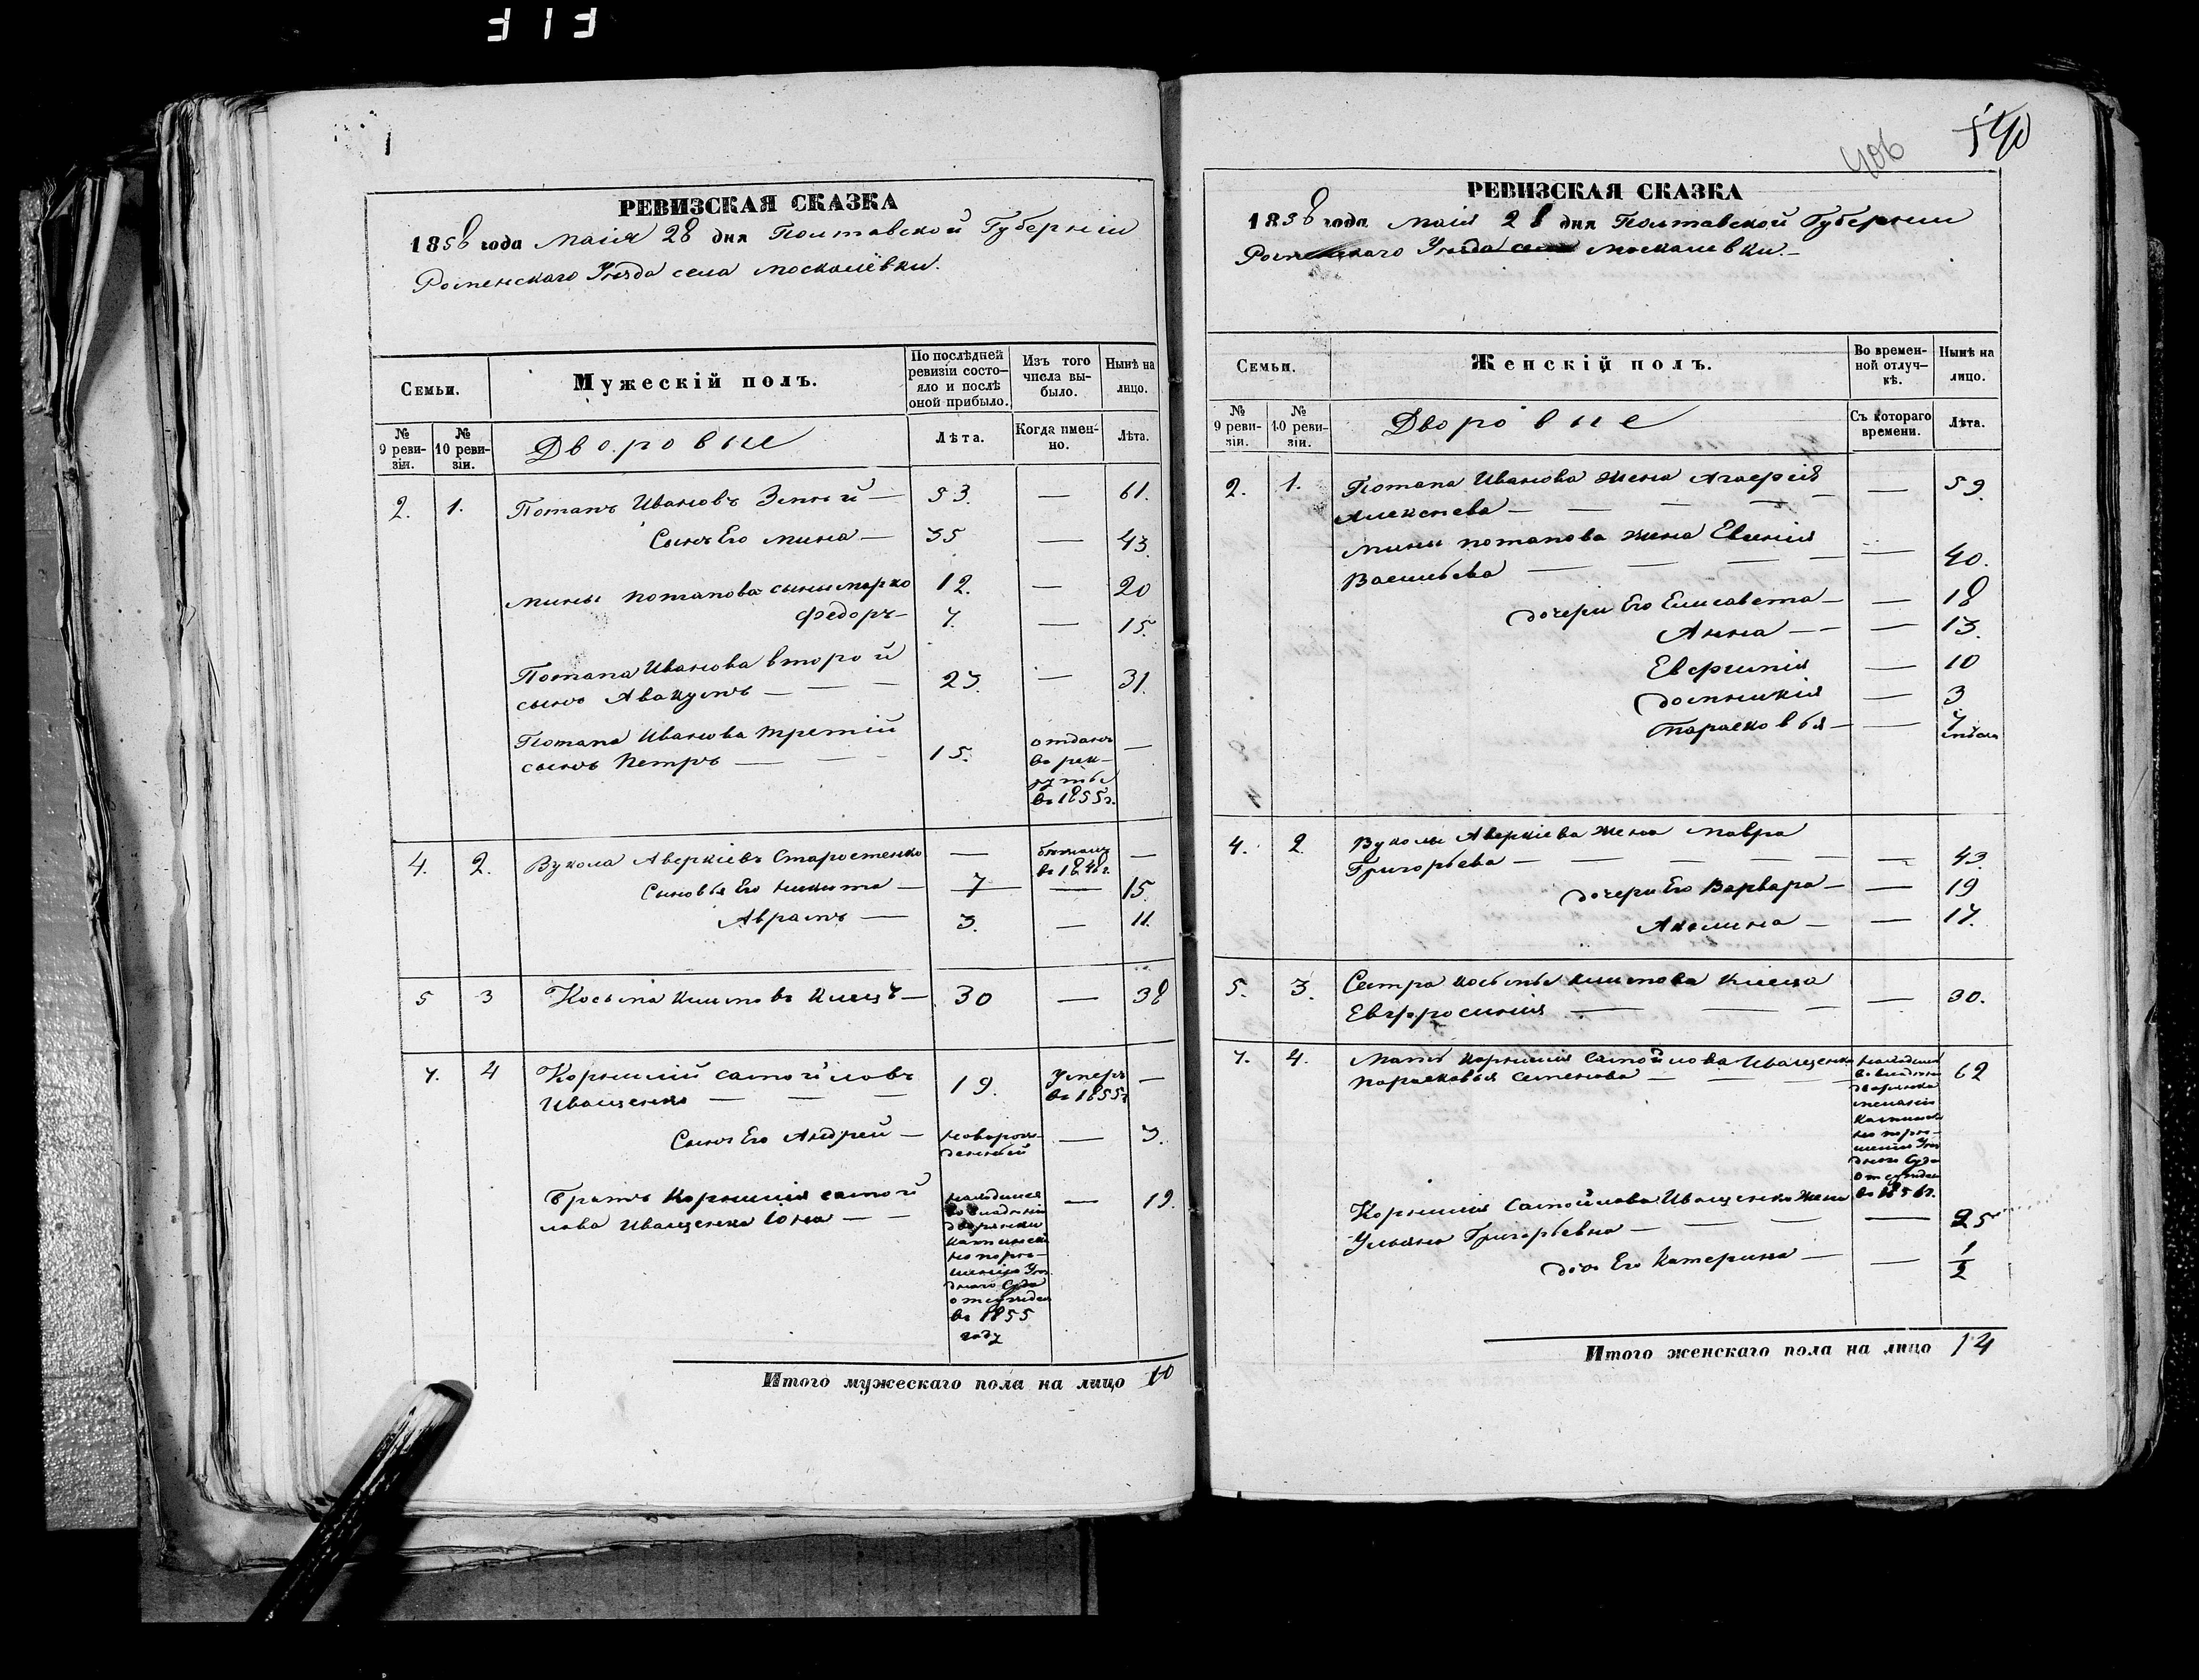 1
РЕВИЗСКАЯ СКАЗКА
1858 года Маія 28 дня Полтавской Губерніи
Роменскаго Уезда села Москалёвки.
Семьи.
Мужескій полъ.
По послѣдней ревизіи состояло и послѣ оной прибыло.
Изъ того числа выбыло.
Нынѣ на лицо.
№ 9 ревизіи.
№ 10 ревизіи.
Дворовые
Лѣта.
Когда именно.
Лѣта.
2. 1. Потапъ Ивановъ Зимный — 53 — 61.
Сынъ Его Мина — 35 — 43.
Мины Потапова сыны Марко 12. — 20
Федоръ — 7. — 15.
Потапа Иванова второй
сынъ Авакумъ — — — 23. — 31.
Потапа Иванова третій
сынъ Петръ — — — 15. отданъ в рекруты в 1855 г. —
4. 2. Вукола Аверкіевъ Старостенко — в 1848 г. —
Сыновья Его Никита — 7 — 15.
Аврамъ — 3. — 11.
5 3 Косьма Климовъ — 30 — 38
7. 4 Корнилій Самойловъ
Иващенко — — — 19. Умеръ в 1855 г. —
Сынъ Его Андрей — новорожденный — 3.
Братъ Корнилія Самой
лова Иващенка Іона — — находился во владѣніи дворянки по Уезднаго Суда отсужден в 1855 году — 19.
Итого мужескаго пола на лицо 10
406 540
РЕВИЗСКАЯ СКАЗКА
1858 года Маія 28 дня Полтавской Губерніи
Роменскаго Уезда села Москалевки.
Семьи.
Женскій полъ.
Во временной отлучкѣ.
Нынѣ на лицо.
№ 9 ревизіи.
№ 10 ревизіи.
Дворовые
Съ котораго времени.
Лѣта.
2. 1. Потапа Иванова жена
Алексеева — — — — 59.
Мины Потапова жена Евгенія
Васильева — — — — 40.
дочери Его Елисавета — — 18
Анна — — 13.
— 10
Домникія — 3
Парасковья — — 7 недель
4. 2. Вуколы Аверкіева жена Мавра
Григорьева — — — — 43.
дочери Его Варвара — — 19
Акилина — — 17.
5. 3. Сестра Косьмы Климова
Евфросинія — — — — 30.
7. 4. Мать Корнилія Самойлова Иващенка
Парасковья Семенова — находился во владѣніи Суда в 1856 г. 62
Корнилія Самойлова Иващенка жена
Ульяна Григорьевна — — — 25
дочь Его Катерина — — 1/2
Итого женскаго пола на лицо 14